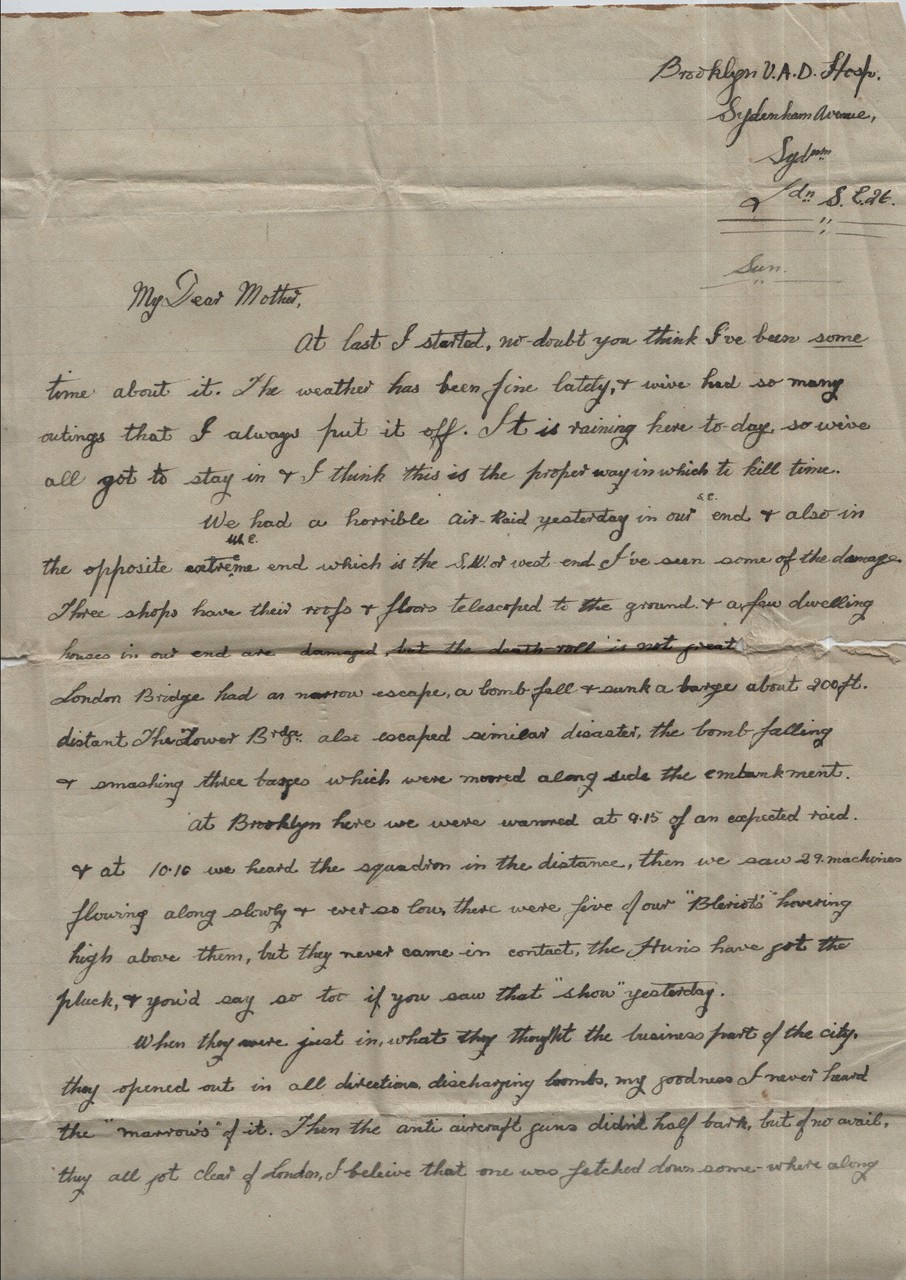 Brooklyn V.A.D. Hosp.
Sydenham Avenue,
Sydm
Ldn S.E.26.
Sun.
My Dear Mother,
At last I started, no-doubt you think I've been some
time about it. The weather has been fine lately, & we've had so many
outings that I always put it off. It is raining here to-day, so we've
all got to stay in & I think this is the proper way in which to kill time.
We had a horrible Air-Raid yesterday in our S.E. end & also in
the opposite extreme end which is the S.W. or west-end I've seen some of the damage.
Three shops have their roofs & floors telescoped to the ground. & a few dwelling
houses in our end are damaged, but the death-roll is not great
London Bridge had an narrow escape, a bomb fell & sunk a barge about 200ft.
distant The Tower Brdge. also escaped similar disaster, the bomb falling
& smashing three barges which were moored along side the embankment.
At Brooklyn here we were warned at 9.15 of an expected raid.
& at 10.10 we heard the squadron in the distance, then we saw 29. machines
flowing along slowly & ever so low, there were five of our "Bleriots" hovering
high above them, but they never came in contact, the Huns have got the
pluck, & you'd say so too if you saw that "show" yesterday.
When they were just in, what they thought the business part of the city,
they opened out in all directions, discharging bombs, my goodness I never heard
the "marrow's" of it. Then the anti aircraft guns didn't half bark, but of no avail,
they all got clear of London, I beleive that one was fetched down some-where along